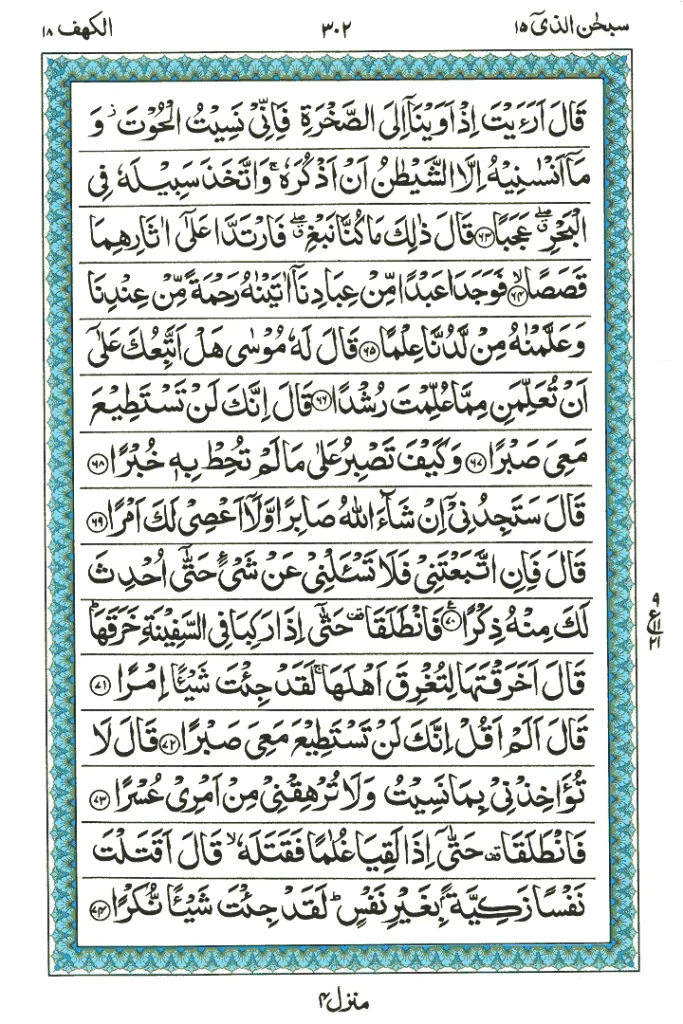 سبحٰن الذیٓ ۱۵
۳۰۲
الکهف ۱۸
قَالَ اَرَءَیْتَ اِذْ اَوَیْنَاۤ اِلَی الصَّخْرَةِ فَاِنِّیْ نَسِیْتُ الْحُوْتَ ؗ وَ
مَاۤ اَنْسٰىنِیْهُ اِلَّا الشَّیْطٰنُ اَنْ اَذْكُرَهٗ ۚ وَاتَّخَذَ سَبِیْلَهٗ فِی
الْبَحْرِ ۖۗ عَجَبًا ﴿۶۳﴾ قَالَ ذٰلِكَ مَا كُنَّا نَبْغِ ۖۗ فَارْتَدَّا عَلٰۤی اٰثَارِهِمَا
قَصَصًا ﴿۶۴﴾ۙ فَوَجَدَا عَبْدًا مِّنْ عِبَادِنَاۤ اٰتَیْنٰهُ رَحْمَةً مِّنْ عِنْدِنَا
وَعَلَّمْنٰهُ مِنْ لَّدُنَّا عِلْمًا ﴿۶۵﴾ قَالَ لَهٗ مُوْسٰی هَلْ اَتَّبِعُكَ عَلٰۤی
اَنْ تُعَلِّمَنِ مِمَّا عُلِّمْتَ رُشْدًا ﴿۶۶﴾ قَالَ اِنَّكَ لَنْ تَسْتَطِیْعَ
مَعِیَ صَبْرًا ﴿۶۷﴾ وَكَیْفَ تَصْبِرُ عَلٰی مَا لَمْ تُحِطْ بِهٖ خُبْرًا ﴿۶۸﴾
قَالَ سَتَجِدُنِیْۤ اِنْ شَآءَ اللّٰهُ صَابِرًا وَّلَاۤ اَعْصِیْ لَكَ اَمْرًا ﴿۶۹﴾
قَالَ فَاِنِ اتَّبَعْتَنِیْ فَلَا تَسْـَٔلْنِیْ عَنْ شَیْءٍ حَتّٰۤی اُحْدِثَ
لَكَ مِنْهُ ذِكْرًا ﴿۷۰﴾ۧ فَانْطَلَقَا ۥ حَتّٰۤی اِذَا رَكِبَا فِی السَّفِیْنَةِ خَرَقَهَا ؕ
قَالَ اَخَرَقْتَهَا لِتُغْرِقَ اَهْلَهَا ۚ لَقَدْ جِئْتَ شَیْـًٔا اِمْرًا ﴿۷۱﴾
قَالَ اَلَمْ اَقُلْ اِنَّكَ لَنْ تَسْتَطِیْعَ مَعِیَ صَبْرًا ﴿۷۲﴾ قَالَ لَا
تُؤَاخِذْنِیْ بِمَا نَسِیْتُ وَلَا تُرْهِقْنِیْ مِنْ اَمْرِیْ عُسْرًا ﴿۷۳﴾
فَانْطَلَقَا ۥ حَتّٰۤی اِذَا لَقِیَا غُلٰمًا فَقَتَلَهٗ ۙ قَالَ اَقَتَلْتَ
نَفْسًا زَكِیَّةًۢ بِغَیْرِ نَفْسٍ ؕ لَقَدْ جِئْتَ شَیْـًٔا نُّكْرًا ﴿۷۴﴾
۹
ع ۱۱
۲۱
منزل ۴